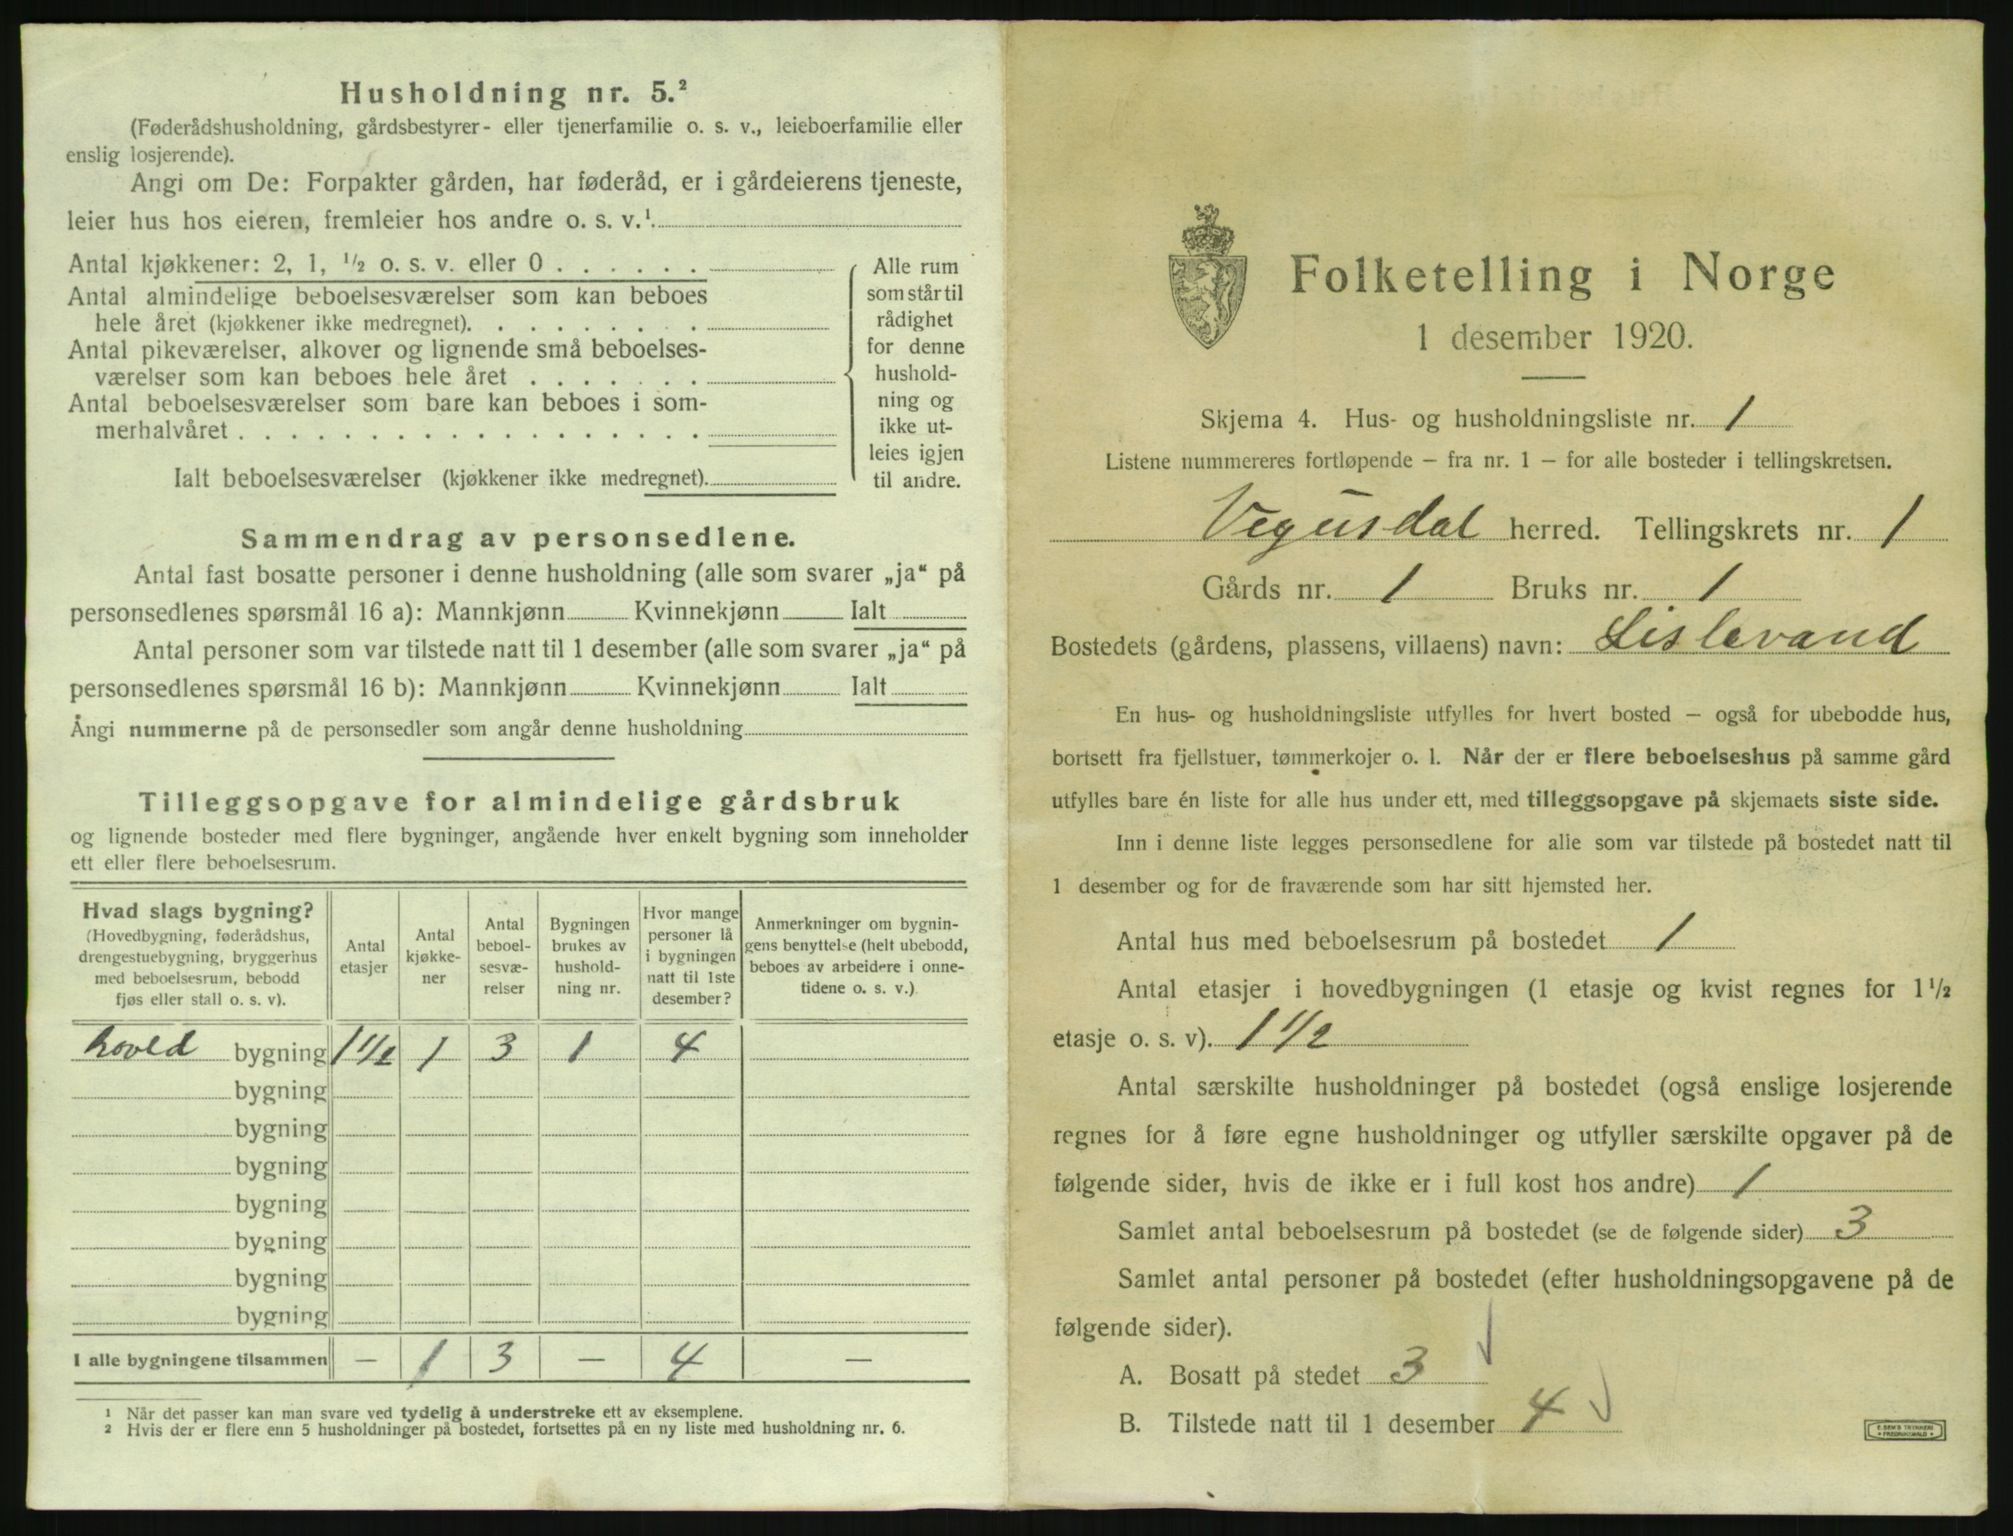 Husholdning nr. 5.²
(Føderådshusholdning, gårdsbestyrer- eller tjenerfamilie o. s. v., leieboerfamilie eller
enslig losjerende).
Angi om De: Forpakter gården, har føderåd, er i gårdeierens tjeneste,
leier hus hos eieren, fremleier hos andre o. s. v.¹
Antal kjøkkener: 2, 1, ½ o. s. v. eller 0 . . . . . .
Antal almindelige beboelsesværelser som kan beboes
hele året (kjøkkener ikke medregnet). . . . . . . . .
Antal pikeværelser, alkover og lignende små beboelses-
værelser som kan beboes hele året . . . . . . .
Antal beboelsesværelser som bare kan beboes i som-
merhalvåret . . . . . . . . . . . . . . . . . .
Ialt beboelsesværelser (kjøkkener ikke medregnet).
Alle rum
som står til
rådighet
for denne
hushold-
ning og
ikke ut-
leies igjen
til andre.
Sammendrag av personsedlene.
Antal fast bosatte personer i denne husholdning (alle som svarer „ja“ på
personsedlenes spørsmål 16 a): Mannkjønn Kvinnekjønn Ialt
Antal personer som var tilstede natt til 1 desember (alle som svarer „ja“ på
personsedlenes spørsmål 16 b): Mannkjønn Kvinnekjønn Ialt
Angi nummerne på de personsedler som angår denne husholdning
Tilleggsopgave for almindelige gårdsbruk
og lignende bosteder med flere bygninger, angående hver enkelt bygning som inneholder
ett eller flere beboelsesrum.
Hvad slags bygning?
(Hovedbygning, føderådshus,
drengestuebygning, bryggerhus
med beboelsesrum, bebodd
fjøs eller stall o. s. v).
Antal
etasjer
Antal
kjøkke-
ner
Antal
beboel-
sesvæ-
relser
Bygningen
brukes av
hushold-
ning nr.
Hvor mange
personer lå
i bygningen
natt til 1ste
desember?
Anmerkninger om bygnin-
gens benyttelse (helt ubebodd,
beboes av arbeidere i onne-
tidene o. s. v.)
hoved bygning 1 1/2 1 3 1 4
bygning
bygning
bygning
bygning
bygning
bygning
bygning
I alle bygningene tilsammen — 1 3 — 4 —
¹ Når det passer kan man svare ved tydelig å understreke ett av eksemplene.
² Hvis der er flere enn 5 husholdninger på bostedet, fortsettes på en ny liste med husholdning nr. 6.
Folketelling i Norge
1 desember 1920.
Skjema 4. Hus- og husholdningsliste nr. 1
Listene nummereres fortløpende – fra nr. 1 – for alle bosteder i tellingskretsen.
Vegusdal herred. Tellingskrets nr. 1
Gårds nr. 1 Bruks nr. 1
Bostedets (gårdens, plassens, villaens) navn: Lislevand
En hus- og husholdningsliste utfylles for hvert bosted – også for ubebodde hus,
bortsett fra fjellstuer, tømmerkojer o. l. Når der er flere beboelseshus på samme gård
utfylles bare én liste for alle hus under ett, med tilleggsopgave på skjemaets siste side.
Inn i denne liste legges personsedlene for alle som var tilstede på bostedet natt til
1 desember og for de fraværende som har sitt hjemsted her.
Antal hus med beboelsesrum på bostedet 1
Antal etasjer i hovedbygningen (1 etasje og kvist regnes for 1 ½
etasje o. s. v). 1 1/2
Antal særskilte husholdninger på bostedet (også enslige losjerende
regnes for å føre egne husholdninger og utfyller særskilte opgaver på de
følgende sider, hvis de ikke er i full kost hos andre) 1
Samlet antal beboelsesrum på bostedet (se de følgende sider) 3
Samlet antal personer på bostedet (efter husholdningsopgavene på de
følgende sider).
A. Bosatt på stedet 3
B. Tilstede natt til 1 desember 4